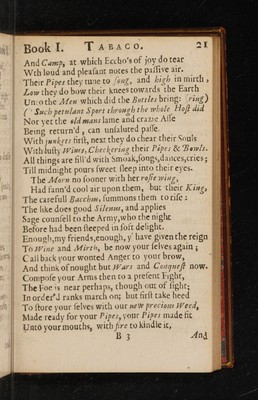 Book I. TABACO. 21
And Camp, at which Eccho's of joy do tear
Wth loud and pleasant notes the passive air.
Their Pipes they tune to song, and high in mirth,
Low they do bow their knees towards the Earth
Unto the Men which did the Bottles bring: (ring)
(Such petulant Spors through the whole Host did
Nor yet the old mans lame and crazie Asse
Being return'd, can unsaluted passe.
With junkets first, next they do chear their Souls
With lusty Wines, Checkering their Pipes & Bowls.
All things are fill'd with Smoak, songs, dances, cries;
Till midnight pours sweet sleep into their eyes.
The Morn no sooner with her rosie wing,
Had fann'd cool air upon them, but their King,
The carefull Bacchus, summons them to rise:
The like does good Silenus, and applies
Sage counsell to the Army, who the night
Before had been steeped in soft delight.
Enough, my friends, enough, y' have given the reign
To Wine and Mirth, be now your selves again;
Call back your wonted Anger to your brow,
And think of nought but Wars and Conquest now.
Compose your Arms then to a present Fight,
The Foe is near perhaps, though out of sight;
In order'd ranks march on; but first take heed
To store your selves with our new precious Weed,
Made ready for your Pipes, your Pipes made fit
Unto your mouths, with fire to kindle it,
B 3 And